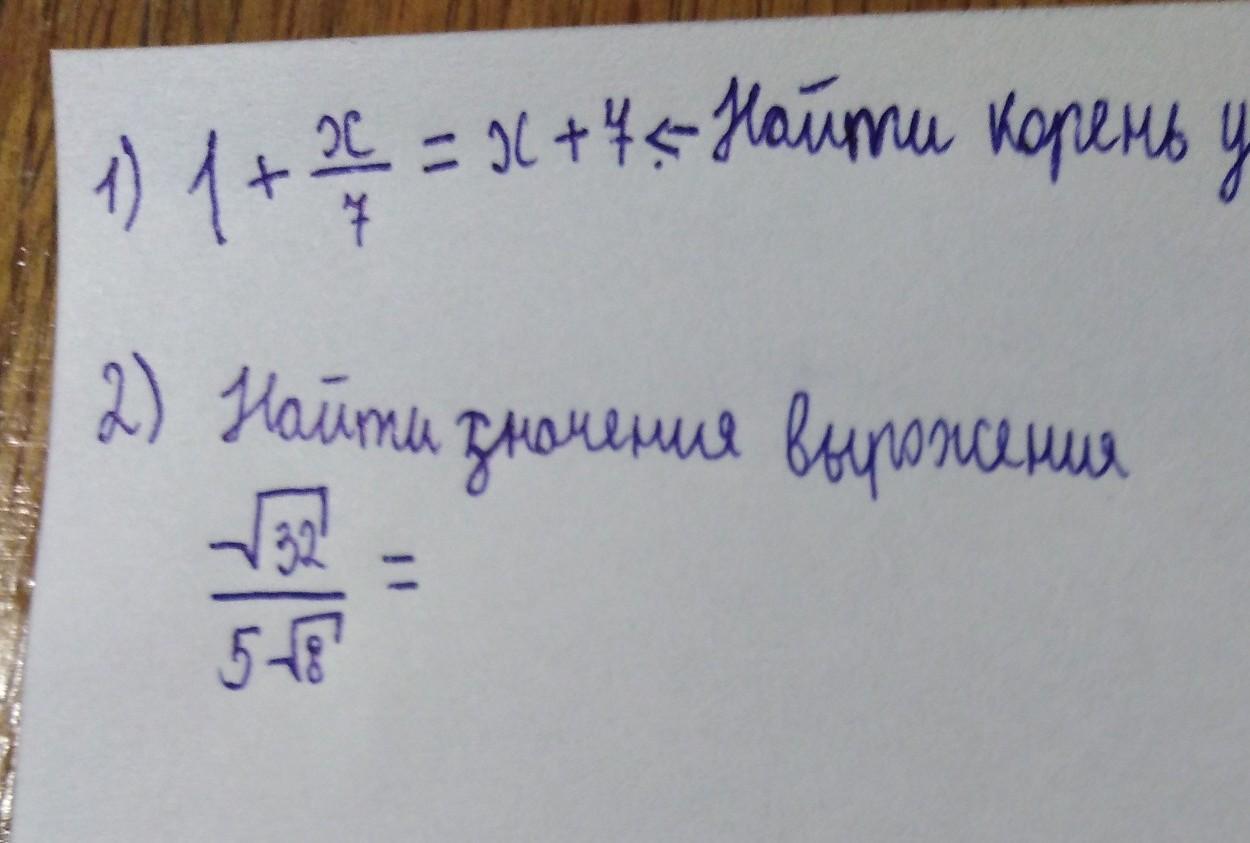 1) 1 + x/7 = x + 7 ← Найти корень у
2) Найти значения выражения
√32 / 5√8 =